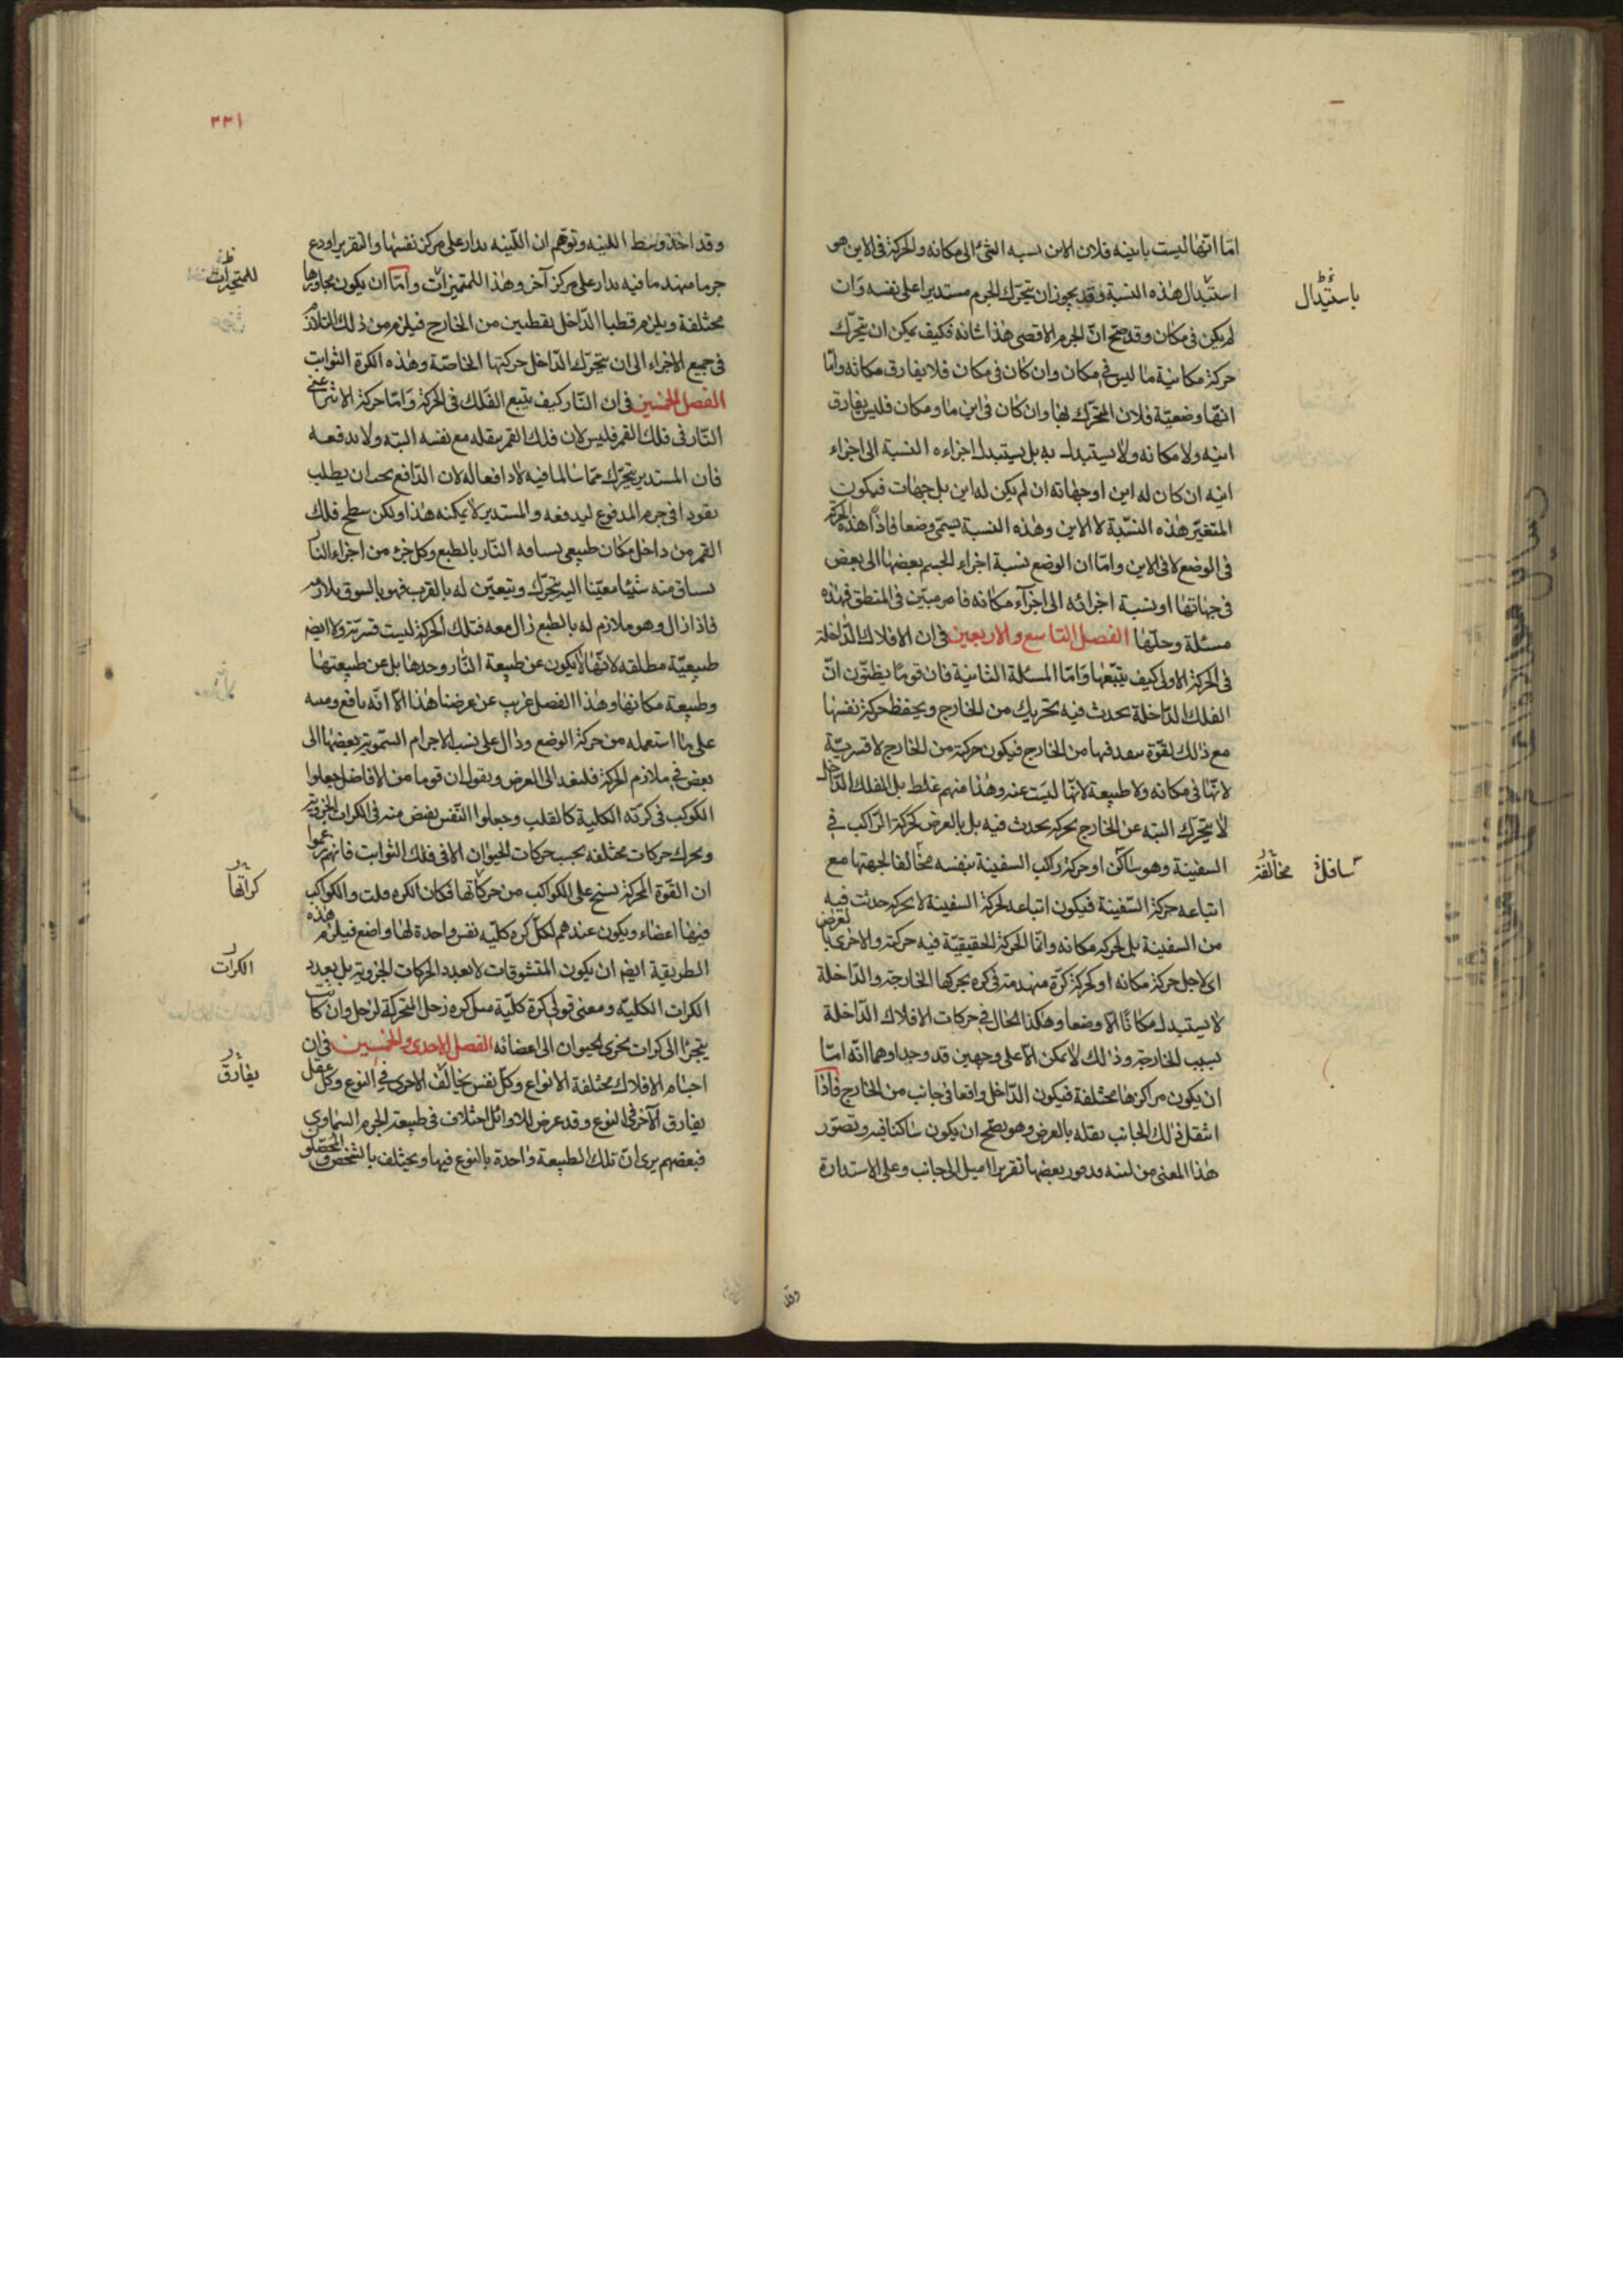 اما انها ليست باينيه فلان الاين نسبه الشئ الى مكانه والحركة فى الاين هو
استبدال هذه النسبة وقد يجوز ان يتحرك الجرم مستديرا على نفسه وان
لم يكن فى مكان وقد صح ان الجرم الاقصى هذا شانه فكيف يمكن ان يتحرك
حركة مكانية ما ليس فى مكان وان كان فى مكان فلا يفارق مكانه واما
انها وضعية فلان المتحرك بها وان كان فى اين ما ومكان فليس يفارق
اينه ولا مكانه ولا يستبدل به بل يستبدل اجزاءه النسبة الى اجزاء
اينه ان كان له اين او جهاته ان لم يكن له اين بل جهات فيكون
المتغير هذه النسبة لا الاين وهذه النسبة يسمى وضعا فاذا هذه الحركة
فى الوضع لا فى الاين واما ان الوضع نسبة اجزاء الجسم بعضها الى بعض
فى جهاتها او نسبة اجزائه الى اجزاء مكانه فامر مبين فى المنطق فهذه
مسئلة وحلها الفصل التاسع والاربعين فى ان الافلاك الداخلة
فى الحركة الاولى كيف يتبعها واما المسئلة الثانية فان قوما يظنون ان
الفلك الداخلة يحدث فيه تحريك من الخارج ويحفظ حركة نفسها
مع ذلك لقوة ينفذ فيها من الخارج فيكون حركة من الخارج لا قسرية
لانها فى مكانه ولا طبيعة لانها ليست عنه وهذا منهم غلط بل الفلك الداخل
لا يتحرك البته عن الخارج بحركة يحدث فيه بل بالعرض كحركة الراكب فى
السفينة وهو ساكن او حركة راكب السفينة بنفسه مخالفا لجهتها مع
اتباعه حركة السفينة فيكون اتباعه لحركة السفينة لا بحركة حدثت فيه
من السفينة بل لحركة مكانه وانما الحركة الحقيقية فيه حركته والاخرى بالعرض
اى لاجل حركة مكانه او كحركة كرة منهدمة فى كره يحركها الخارجة والداخلة
لا يستبدل مكانا الا وضعا وهكذا الحال فى حركات الافلاك الداخلة
بسبب الخارجة وذلك لا يمكن الا على وجهين قد وجدا وهما انه اما
ان يكون مراكزها مختلفة فيكون الداخل واقعا فى جانب من الخارج فاذا
انتقل ذلك الجانب نقله بالعرض وهو يصح ان يكون ساكنا فيه وتصور
هذا المعنى من لبنه يدور بعضها تقريرا ميل الى جانب وعلى الاستدارة
باستبدال
ساكن
مخالفة
وقد
٢٣١
وقد اخذ وسط اللبنه وتوهم ان اللبنه يدار على مركز نفسها والتقرير اودع
جرما منهدما فيه يدار على مركز آخر وهذا للمتميزات واما ان يكون محاورها
مختلفة ويلزم قطبا الداخل نقطبين من الخارج فيلزم من ذلك التلازم
فى جميع الاجزاء الى ان يتحرك الداخل حركتها الخاصة وهذه الكرة الثوابت
الفصل الخمسين فى ان النار كيف يتبع الفلك فى الحركة واما حركة الاثير اعنى
النار فى فلك القمر فليس لان فلك القمر ينقله مع نفسه البته ولا يدفعه
فان المستدير يتحرك مماسا لما فيه لا دافعا له لان الدافع يجب ان يطلب
نفوذا فى جرم المدفوع ليدفعه والمستدير لا يمكنه هذا ولكن سطح فلك
القمر من داخل مكان طبيعى يساقه النار بالطبع وكل جزء من اجزاء النار
يساق منه شيئا معينا اليه يتحرك ويتعين له بالقرب فهو بالسوق يلازمه
فاذا زال وهو ملازم له بالطبع زال معه فتلك الحركة ليست قسرية ولا ايضا
طبيعية مطلقه لانها لا يكون عن طبيعة النار وحدها بل عن طبيعتها
وطبيعة مكانها وهذا الفصل غريب عن غرضنا هذا الا انه نافع ومنبه
على ما استعمله من حركة الوضع وذال على نسب الاجرام السموية بعضها الى
بعض فى ملازم الحركة فلنعد الى الغرض ويقول ان قوما من الافاضل جعلوا
الكوكب فى كرته الكلية كالقلب وجعلوا النفس يفيض منه فى الكرات الجزوية
ويحرك حركات مختلفه بحسب حركات الحيوان الا فى فلك الثوابت فانهم زعموا
ان القوة المحركة تسنح على الكواكب من حركاتها فكان الكره قلت والكواكب
فيها اعضاء ويكون عندهم لكل كره كليه نفس واحدة لها واضع فيلزم هذه
الطريقة ايضا ان يكون المتشوقات لا بعدد الحركات الجزوية بل بعدد
الكرات الكلية ومعنى قولى كرة كلية مثل كره زحل المتحركة لزحل وان كانت
يتجزا الى كرات تجزى الحيوان الى اعضائه الفصل الاحدى والخمسين فى ان
اجسام الافلاك مختلفة الانواع وكل نفس يخالف الاخرى فى النوع وكل عقل
يفارق الآخر فى النوع وقد عرض للاوائل اختلاف فى طبيعة الجرم السماوى
فبعضهم يرى ان تلك الطبيعة واحدة بالنوع فيها ويختلف بالشخص والمحصلون
للمتحيرات
كراتها
الكرات
يفارق